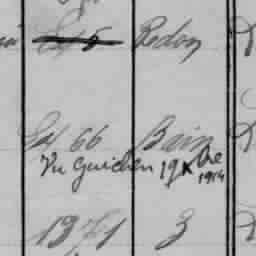 Redon
66 Bain
Vu Guichen 19 xbre
1914
1971 3